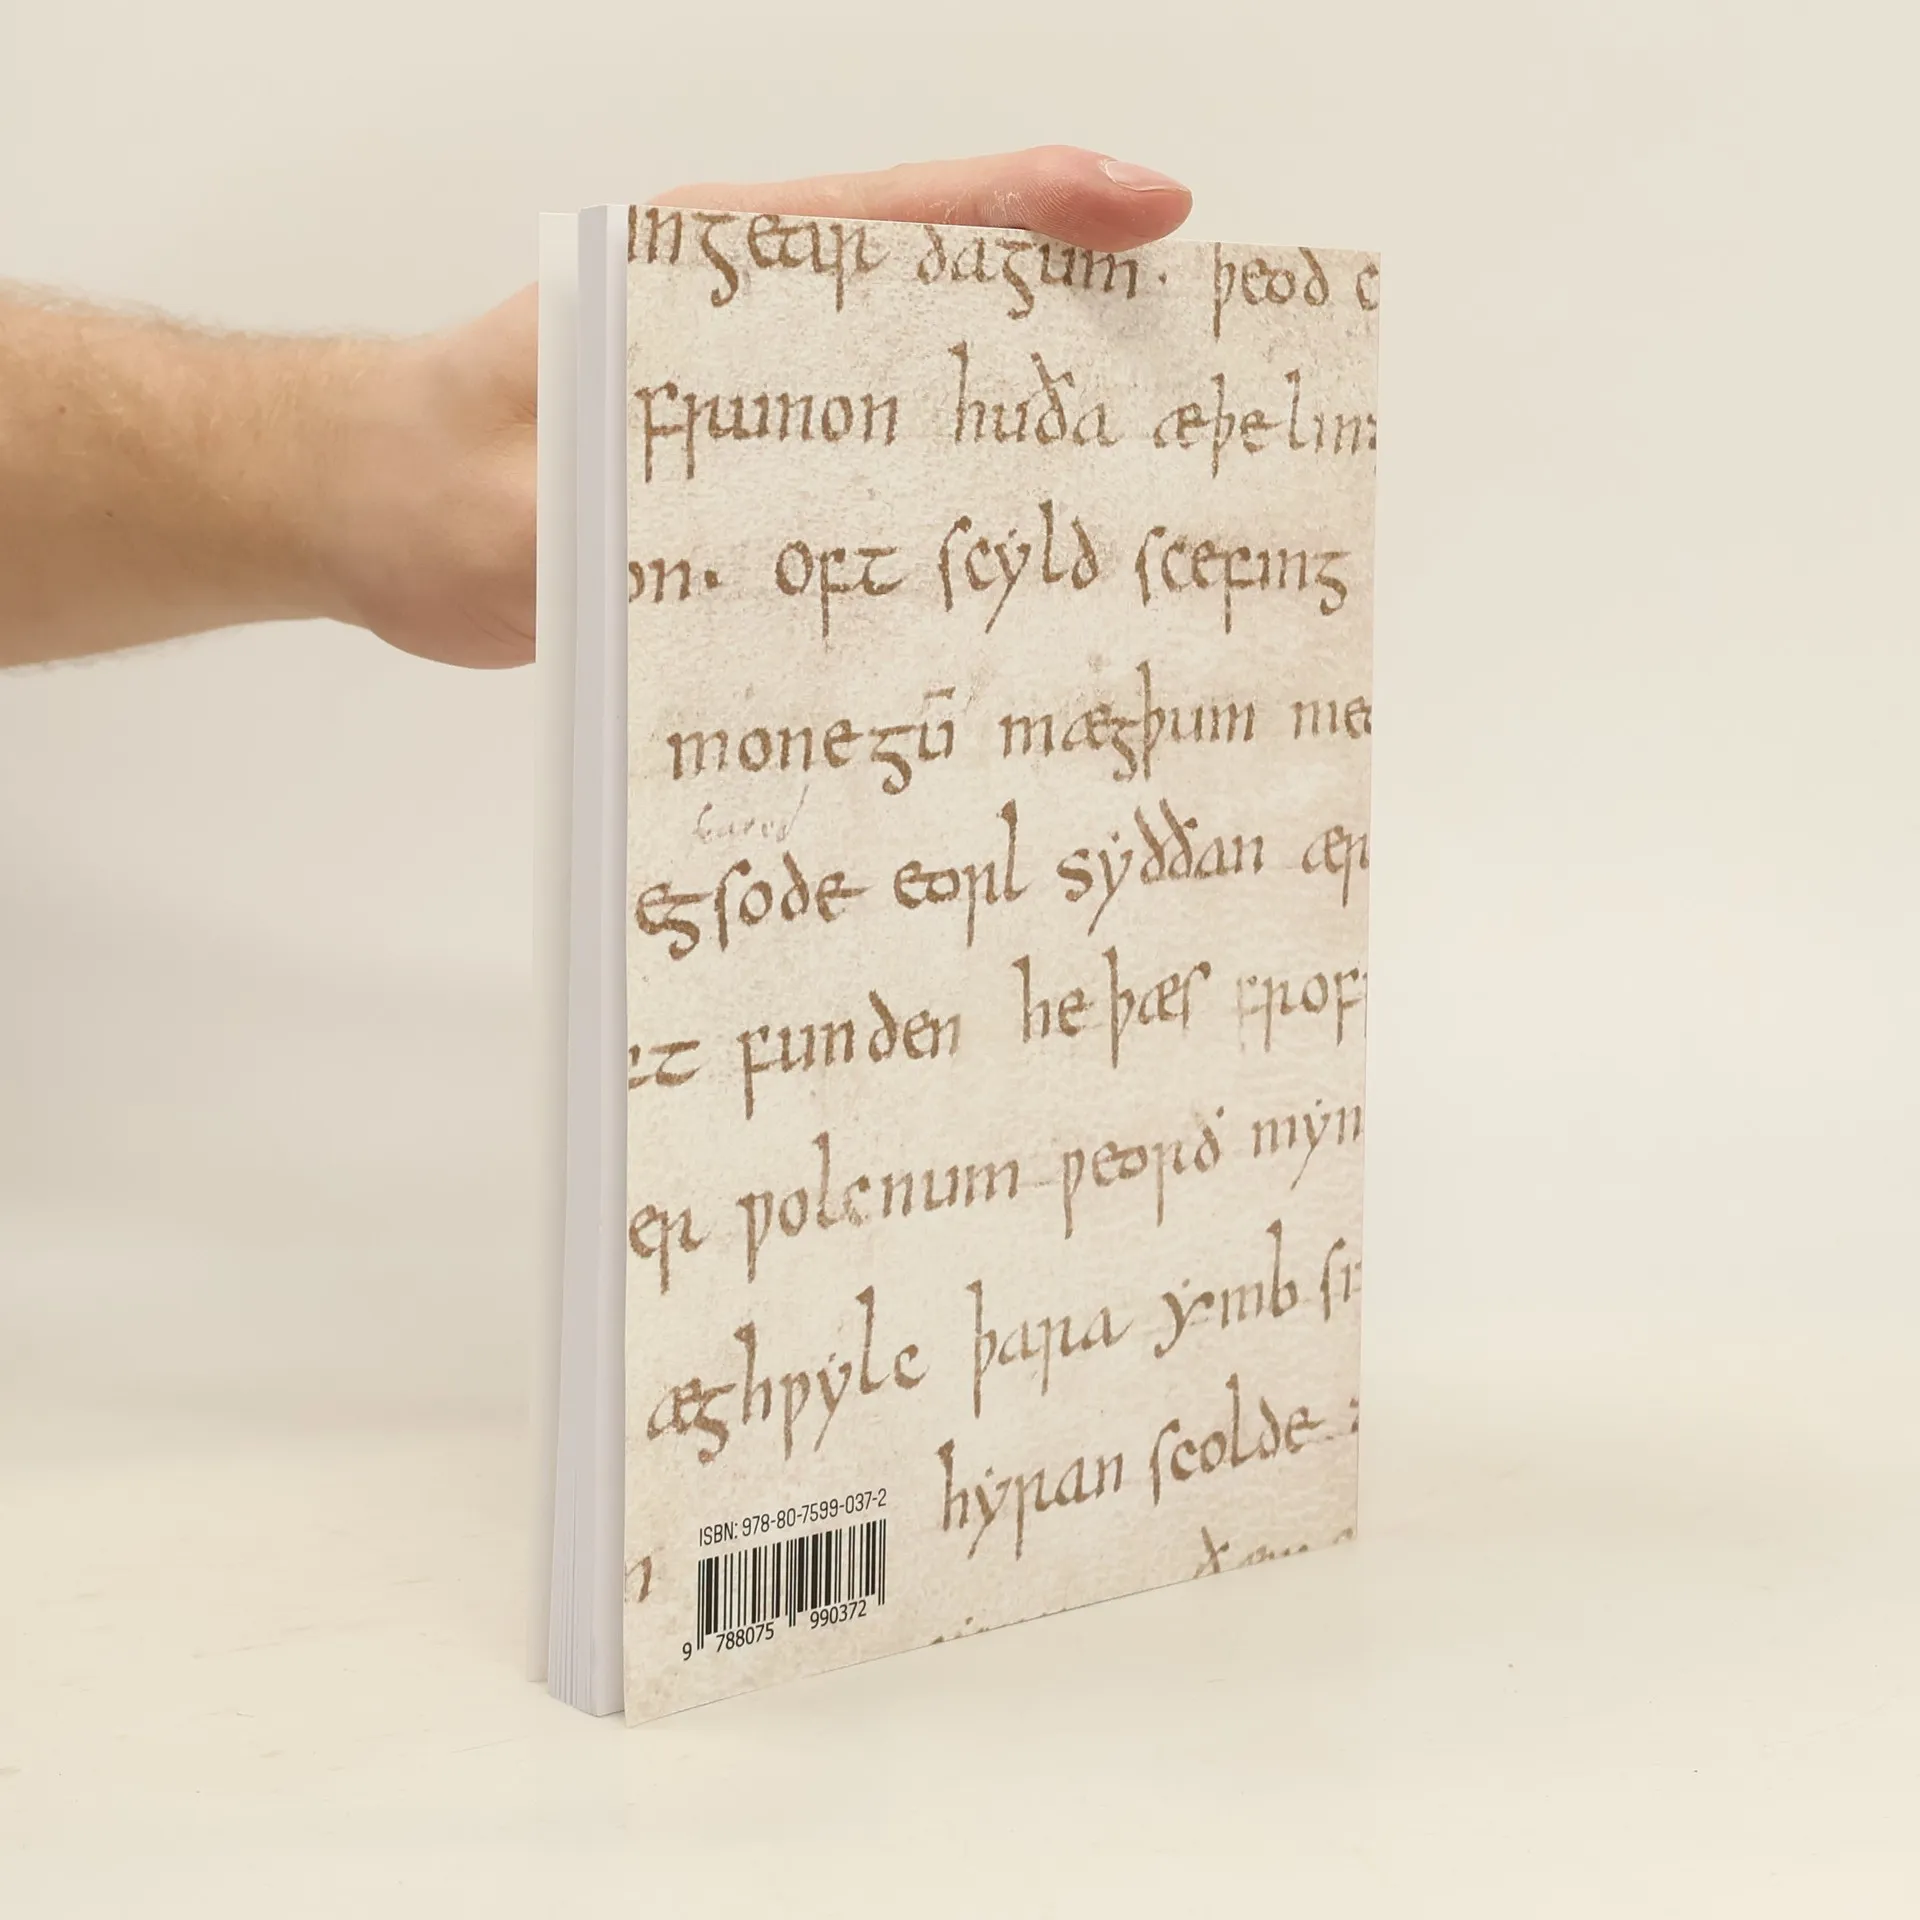 in gear dagum. þeod c
frunon huða æþeling
on. oft scyld scefing
monegū mægþum me
egsode eorl sẏððan ær
funden he þæs frof
er ƿolcnum ƿeorð mẏn
æghƿẏlc þara ẏmb si
hẏran scolde
ISBN: 978-80-7599-037-2
9 788075 990372